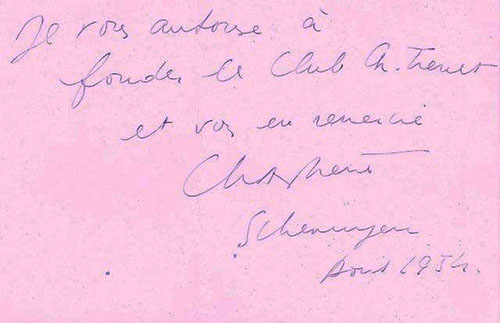 Je vous autorise à
fonder le Club Ch. Trenet
et vous en remercie
Ch. Trenet
Août 1954.